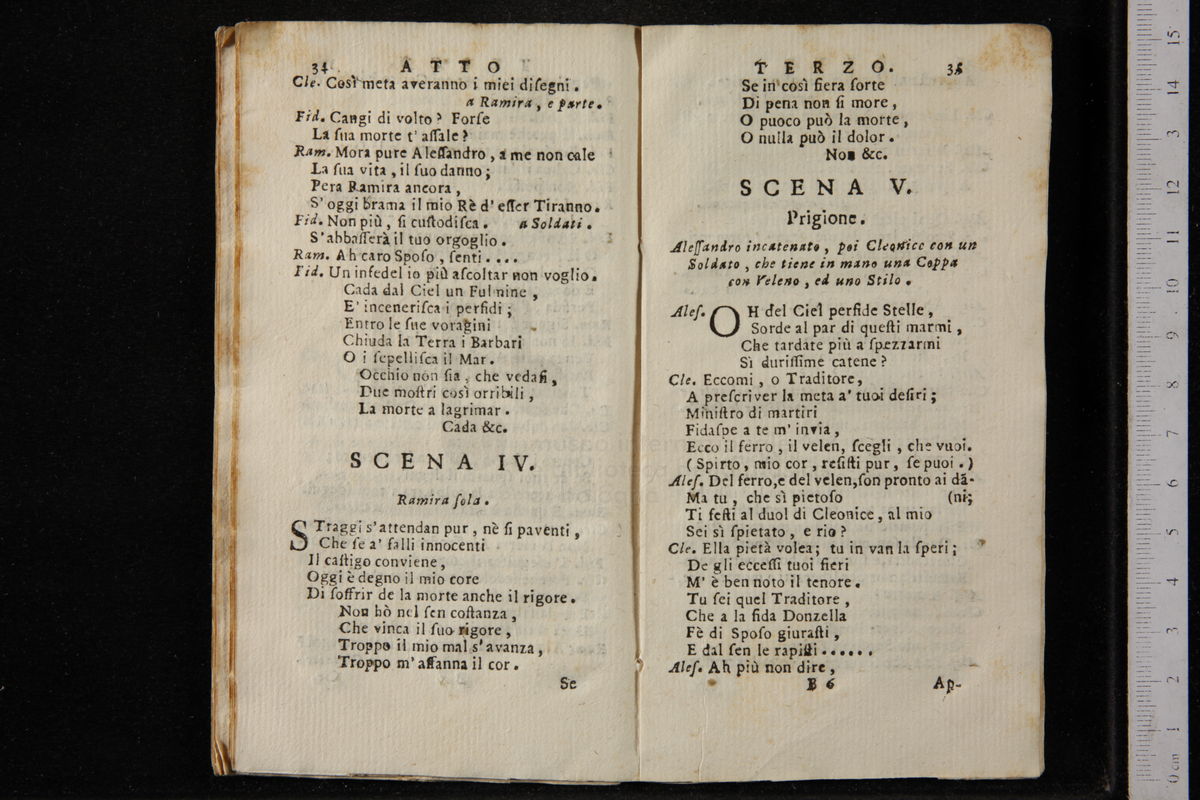 34 ATTO
Cle. Così meta averanno i miei diſegni.
a Ramira, e parte.
Fid. Cangi di volto? Forſe
La ſua morte t' aſſale?
Ram. Mora pure Aleſſandro, a me non cale
La ſua vita, il ſuo danno;
Pera Ramira ancora,
S' oggi brama il mio Rè d' eſſer Tiranno.
Fid. Non più, ſi cuſtodiſca. a Soldati.
S'abbaſſerà il tuo orgoglio.
Ram. Ah caro Spoſo, ſenti....
Fid. Un infedel io più aſcoltar non voglio.
Cada dal Ciel un Fulmine,
E' inceneriſca i perfidi;
Entro le ſue voragini
Chiuda la Terra i Barbari
O i ſepelliſca il Mar.
Occhio non ſia, che vedaſi,
Due moſtri così orribili,
La morte a lagrimar.
Cada &c.
SCENA IV.
Ramira ſola.
STraggi s'attendan pur, nè ſi paventi,
Che ſe a' falli innocenti
Il caſtigo conviene,
Oggi è degno il mio core
Di ſoffrir de la morte anche il rigore.
Non hò nel ſen coſtanza,
Che vinca il ſuo rigore,
Troppo il mio mal s'avanza,
Troppo m'affanna il cor.
Se
TERZO. 35
Se in così fiera ſorte
Di pena non ſi more,
O puoco può la morte,
O nulla può il dolor.
Non &c.
SCENA V.
Prigione.
Aleſſandro incatenato, poi Cleonice con un
Soldato, che tiene in mano una Coppa
con Veleno, ed uno Stilo.
Aleſ. OH del Ciel perfide Stelle,
Sorde al par di queſti marmi,
Che tardate più a ſpezzarmi
Sì duriſſime catene?
Cle. Eccomi, o Traditore,
A preſcriver la meta a' tuoi deſiri;
Miniſtro di martiri
Fidaſpe a te m' invia,
Ecco il ferro, il velen, ſcegli, che vuoi.
(Spirto, mio cor, reſiſti pur, ſe puoi.)
Aleſ. Del ferro, e del velen, ſon pronto ai dã-
Ma tu, che sì pietoſo (ni;
Ti feſti al duol di Cleonice, al mio
Sei sì ſpietato, e rio?
Cle. Ella pietà volea; tu in van la ſperi;
De gli ecceſſi tuoi fieri
M' è ben noto il tenore.
Tu ſei quel Traditore,
Che a la fida Donzella
Fè di Spoſo giuraſti,
E dal ſen le rapiſti......
Aleſ. Ah più non dire,
B 6 Ap-